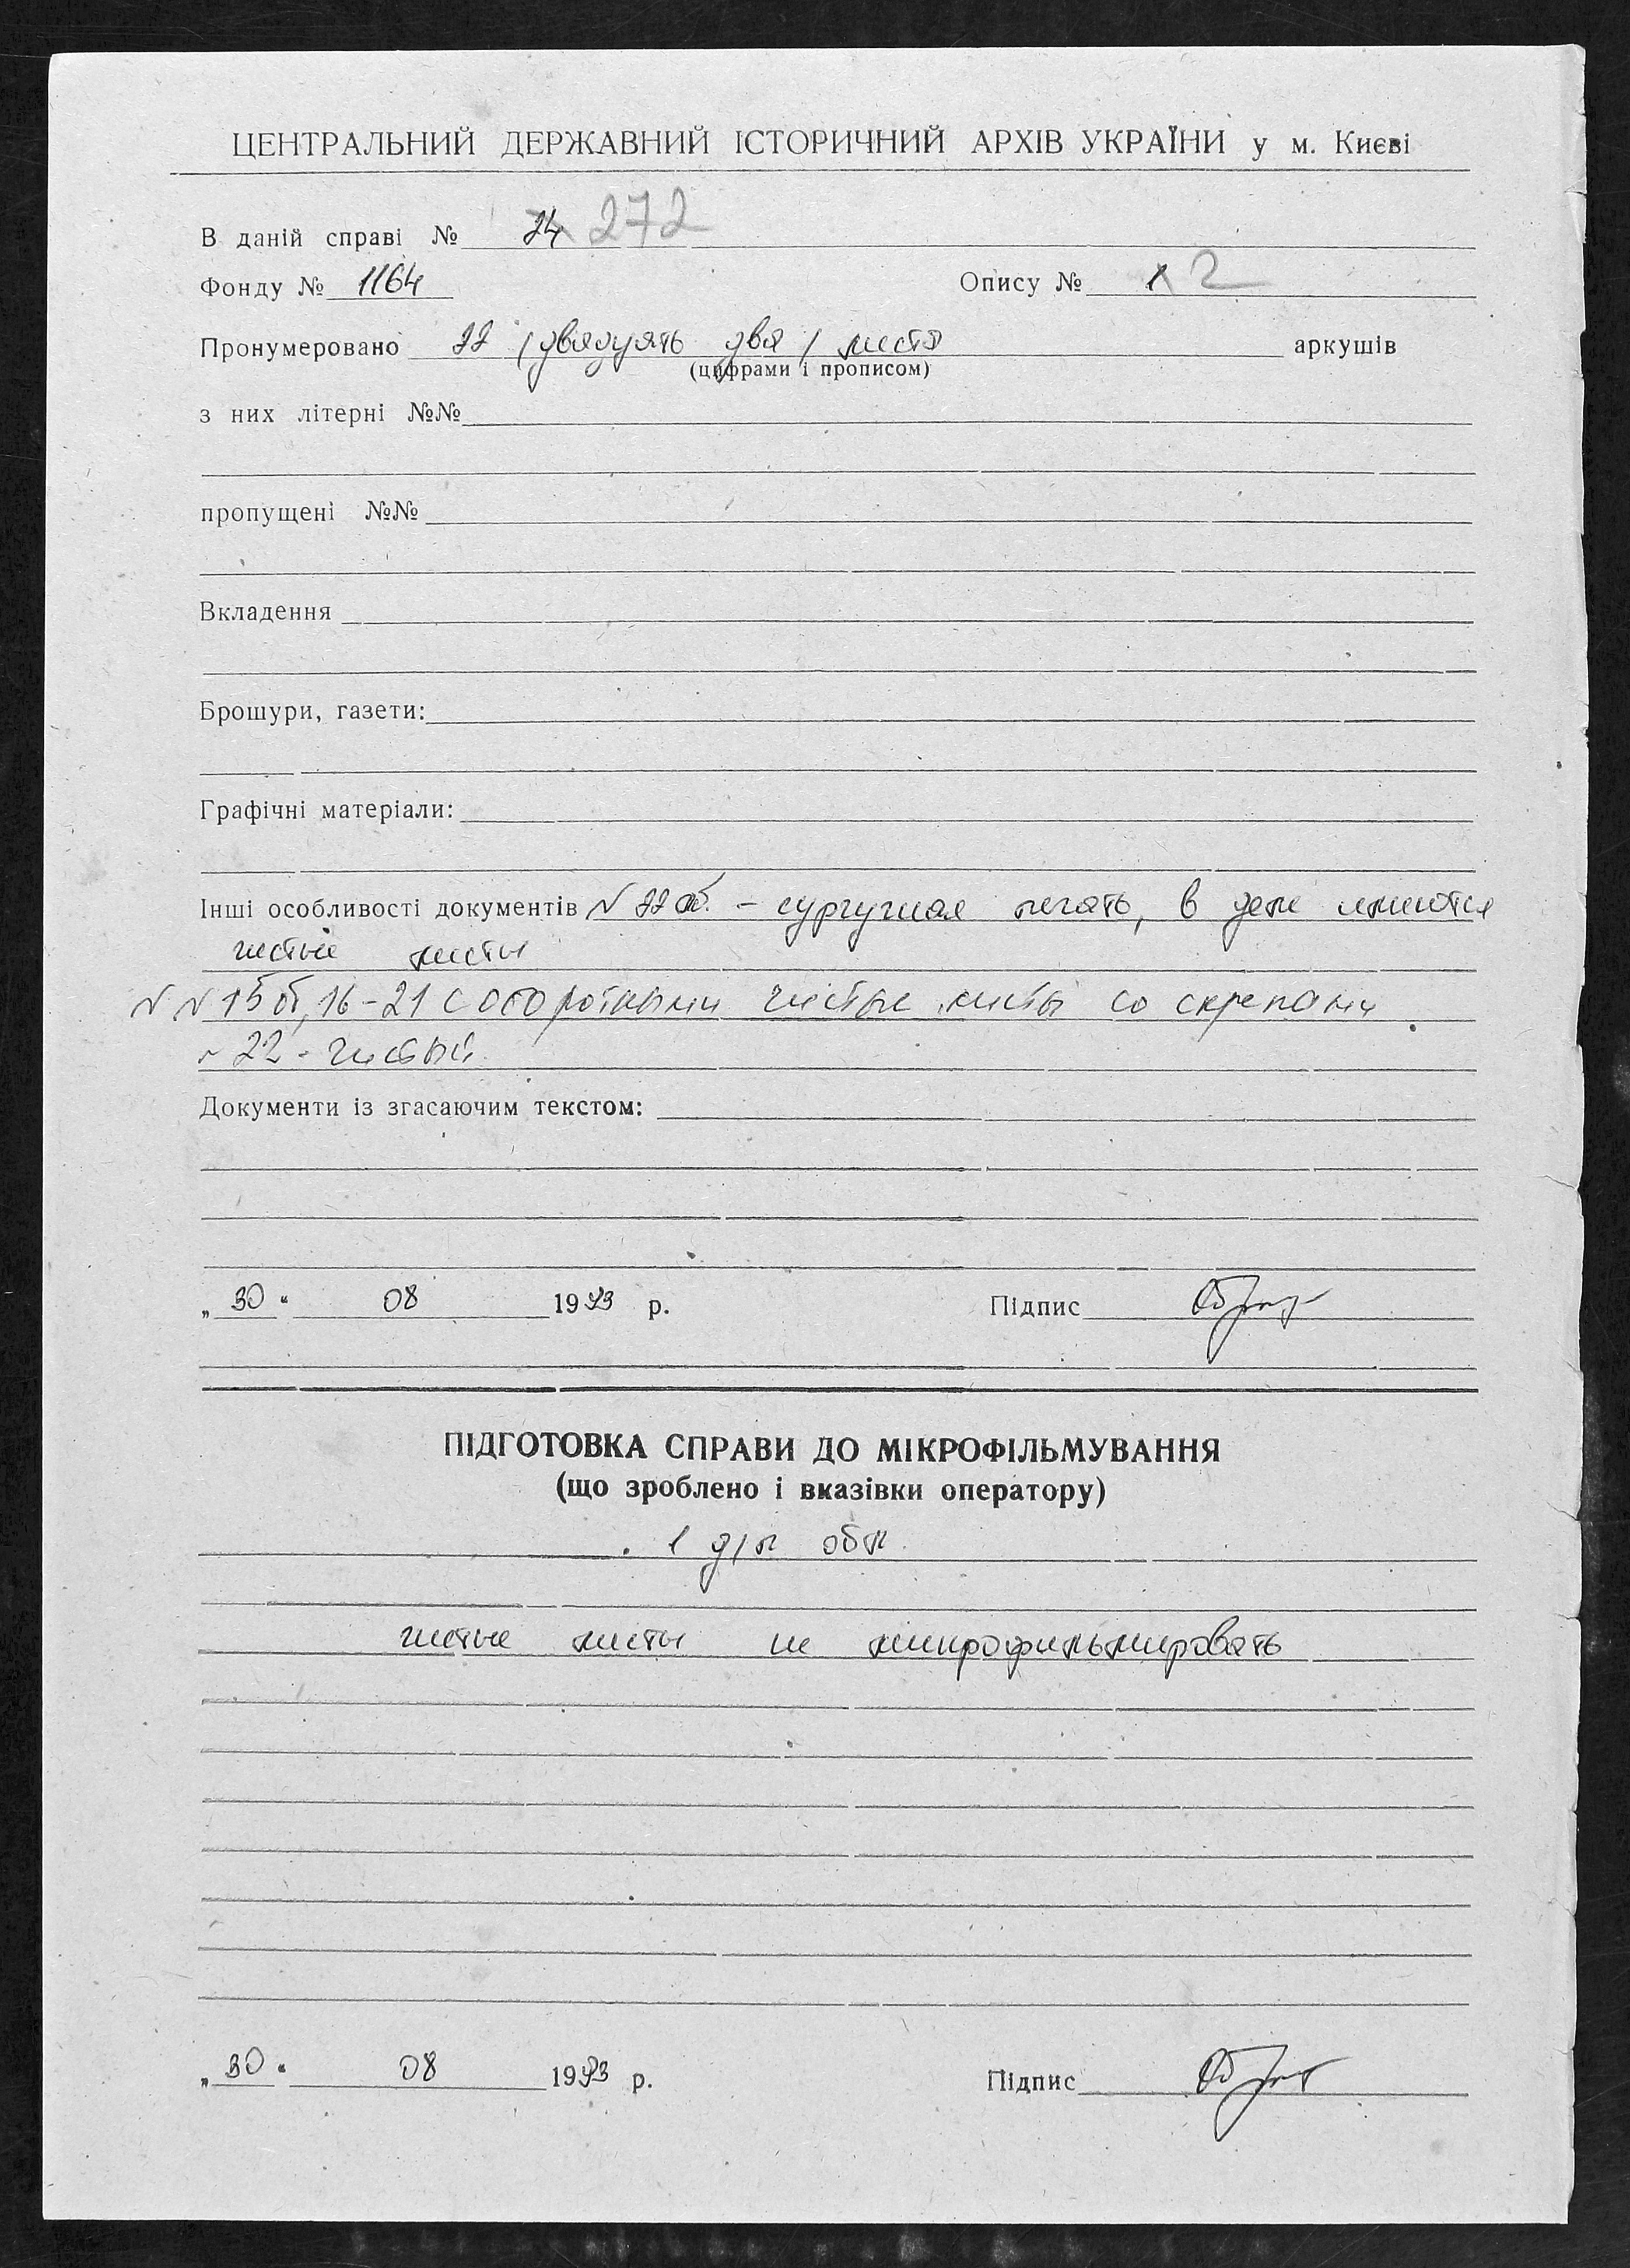 ЦЕНТРАЛЬНИЙ ДЕРЖАВНИЙ ІСТОРИЧНИЙ АРХІВ УКРАЇНИ у м. Києві
В даній справі № 24 272
Фонду № 1164 Опису № 1 2
Пронумеровано 22 /двадцять два/ листа аркушів
(цифрами і прописом)
з них літерні №№
пропущені №№
Вкладення
Брошури, газети:
Графічні матеріали:
Інші особливості документів № 22 об. – сургучная печать, в деле имеются
чистые листы
№ № 15 об, 16-21 с оборотными чистые листы со скрепами
22 - чистый.
Документи із згасаючим текстом:
„30“ 08 1993 р. Підпис
ПІДГОТОВКА СПРАВИ ДО МІКРОФІЛЬМУВАННЯ
(що зроблено і вказівки оператору)
1 д/п обл.
чистые листы не микрофильмировать
„30“ 08 1993 р. Підпис